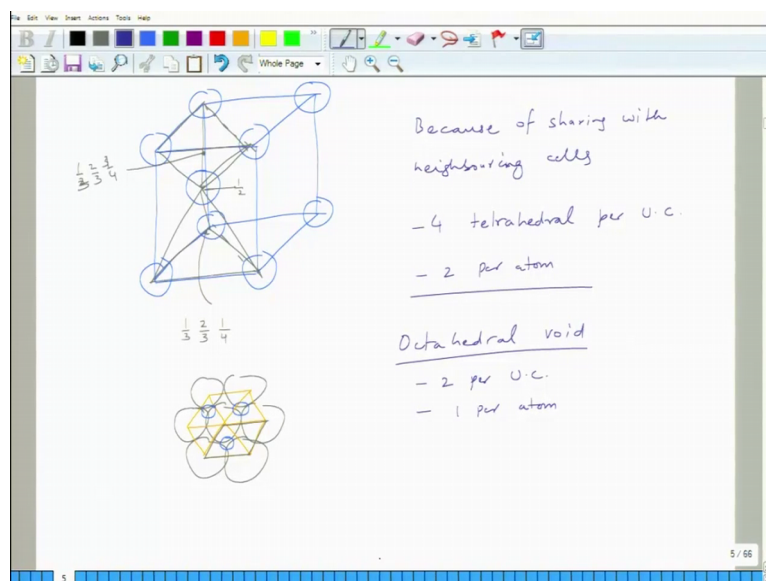 File Edit View Insert Actions Tools Help
B I
Whole Page
Because of sharing with
neighbouring cells
- 4 tetrahedral per U.C.
- 2 per atom
Octahedral void
- 2 per U.C.
- 1 per atom
1/2
1/3 2/3 1/4
5 / 66
5